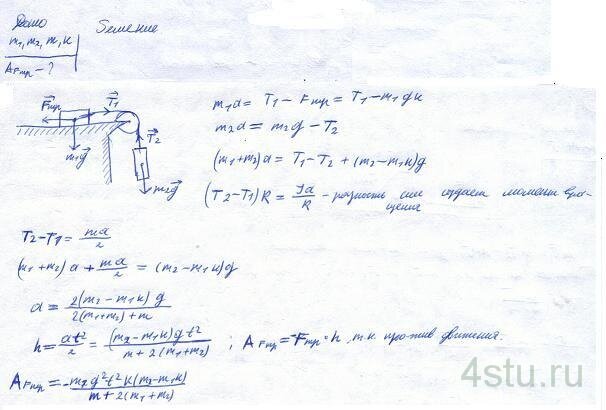 Дано
Решение
m₁, m₂, m, k
A_Fтр – ?
F⃗тр T⃗₁
T⃗₂
m₁g⃗
m₂g⃗
m₁a = T₁ – Fтр = T₁ – m₁gk
m₂a = m₂g – T₂
(m₁+m₂)a = T₁ – T₂ + (m₂–m₁k)g
(T₂–T₁)R = Ja/R – разность сил создает момент вра-
щения
T₂–T₁ = ma/2
(m₁+m₂)a + ma/2 = (m₂–m₁k)g
a = 2(m₂–m₁k)g / 2(m₁+m₂)+m
h = at²/2 = (m₂–m₁k)gt² / m+2(m₁+m₂) ; A_Fтр = –Fтр · h, т.к. против движения.
A_Fтр = –m₁g²t²k(m₂–m₁k) / m+2(m₁+m₂)
4stu.ru